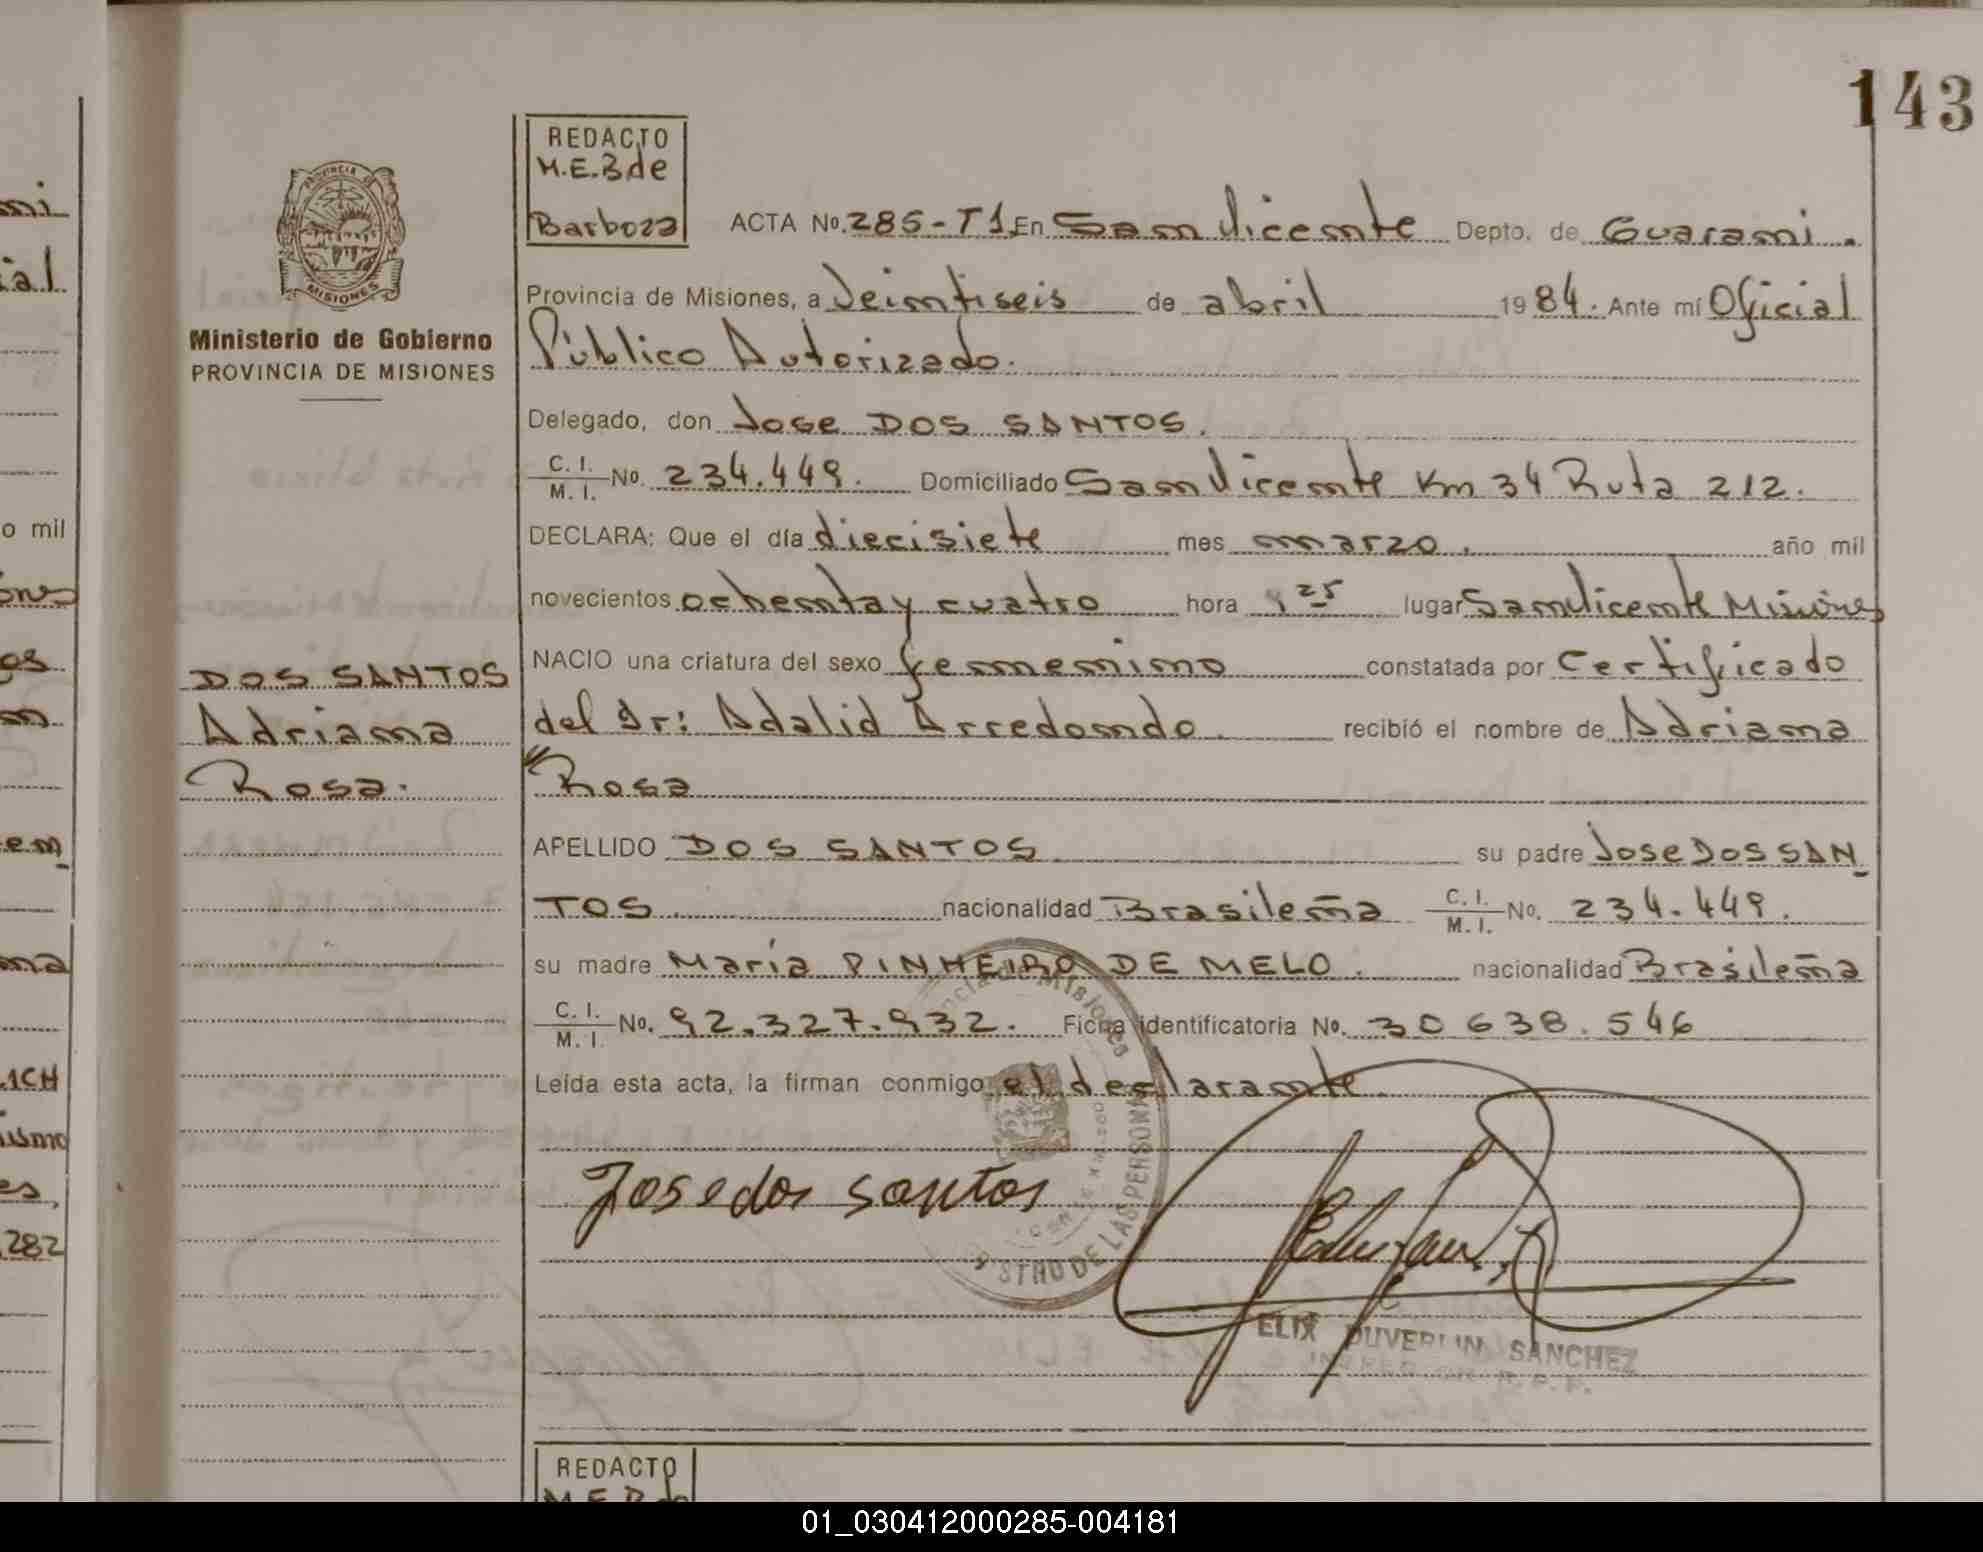 143
REDACTO
M.E.B de
Barboza
ACTA No. 285-T1 En San Vicente Depto. de Guarani.
Provincia de Misiones, a Veintiseis de abril 1984. Ante mí Oficial
Público Autorizado.
Delegado, don Jose DOS SANTOS.
C. I.
M. I. No. 234.449. Domiciliado San Vicente Km 34 Ruta 212.
DECLARA: Que el día diecisiete mes marzo. año mil
novecientos ochenta y cuatro hora 25 lugar San Vicente Misiones
NACIO una criatura del sexo femenino constatada por Certificado
del Dr: Adalid Arredondo. recibió el nombre de Adriana
Rosa
APELLIDO DOS SANTOS su padre Jose DOS SAN
TOS. nacionalidad Brasileña C. I.
M. I. No. 234.449.
su madre María PINHEIRO DE MELO. nacionalidad Brasileña
C. I.
M. I. No. 92.327.932. Ficha identificatoria No. 30638.546
Leída esta acta, la firman conmigo el declarante.
Jose dos santos
ELIX DUVERLIN SANCHEZ
PROVINCIA DE
MISIONES
Ministerio de Gobierno
PROVINCIA DE MISIONES
DOS SANTOS
Adriana
Rosa.
DE LAS PERSONAS
REDACTO
ial
o mil
ones
os
em
ana
ismo
es,
282
01_030412000285-004181